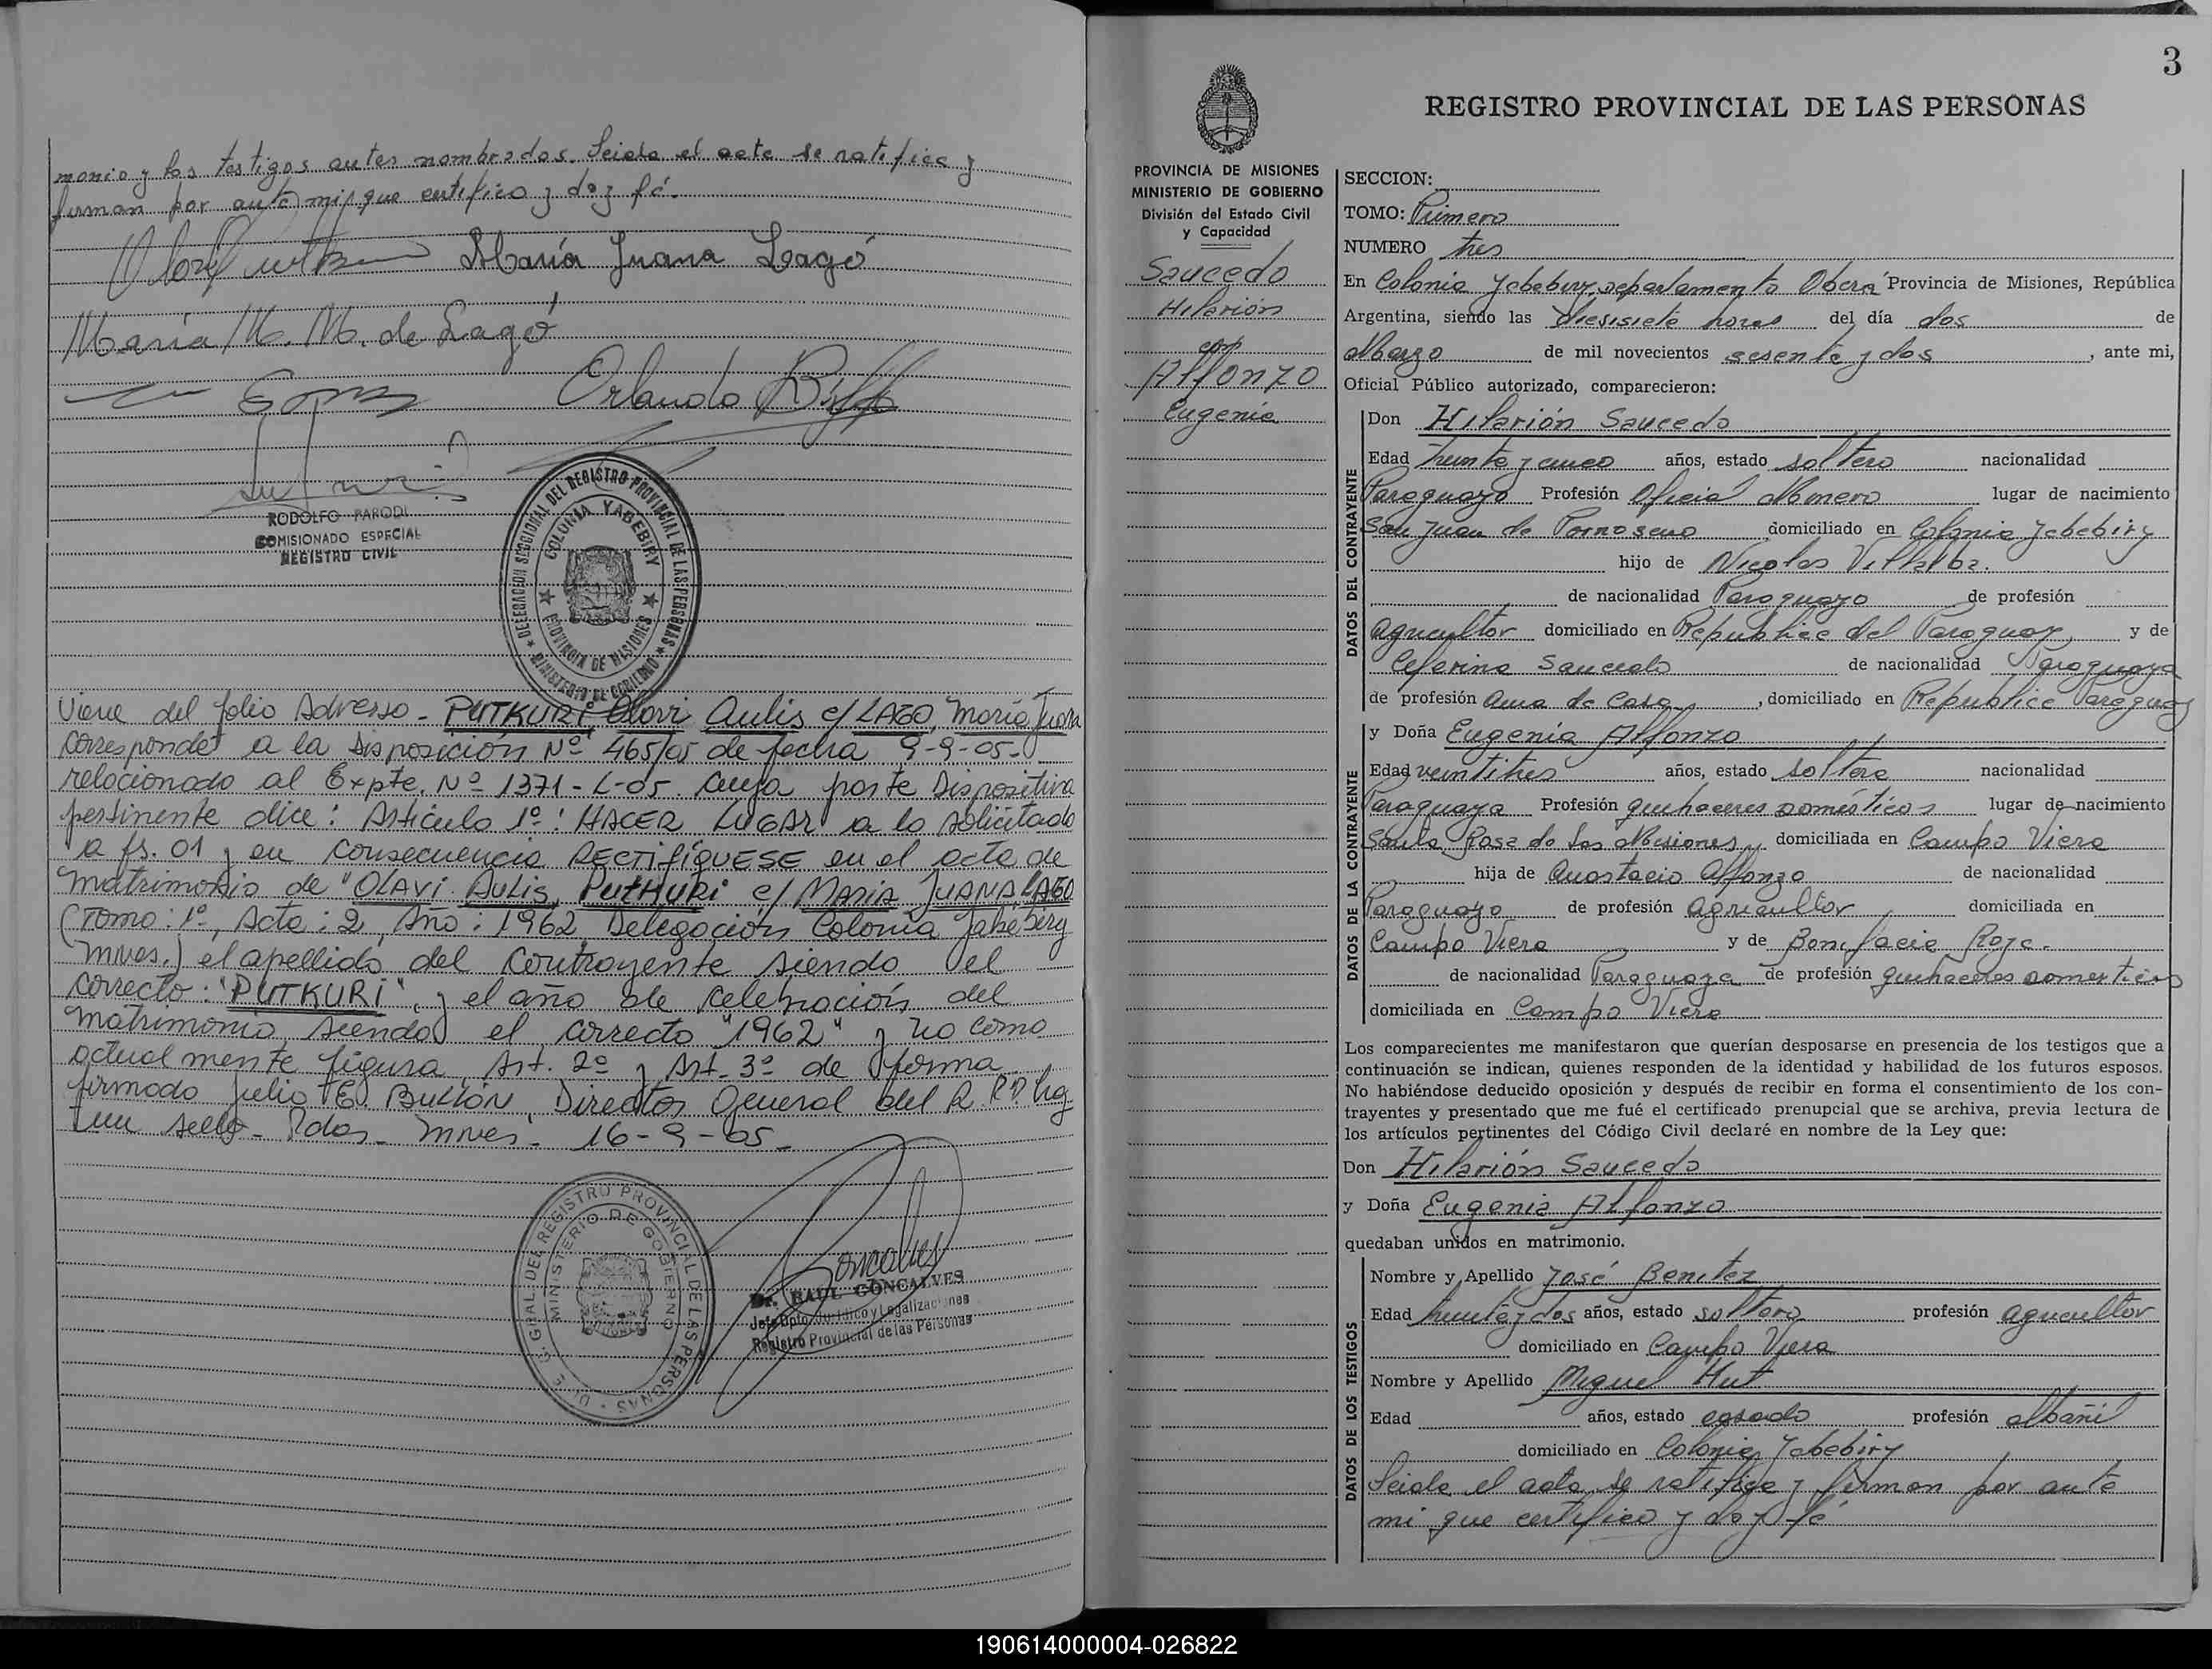 monio y los testigos antes nombrados. Leida el acta se ratifica y
firman por ante mi, que certifico y doy fé.
María Juana Lagó
María M. M. de Lagó
Orlando
RODOLFO PARODI
COMISIONADO ESPECIAL
REGISTRO CIVIL
DELEGACION SECCIONAL DEL REGISTRO PROVINCIAL DE LAS PERSONAS
COLONIA YABEBIRY
PROVINCIA DE MISIONES
MINISTERIO DE GOBIERNO
Viene del folio Adverso - PUTKURI Olavi Aulis c/ LAGO, María Juana
corresponde a la Disposición Nº 465/05 de fecha 9-9-05-
relacionado al Expte. Nº 1371-L-05. cuya parte Dispositiva
pertinente dice: Artículo 1º: HACER LUGAR a lo solicitado
a fs. 01 y en consecuencia RECTIFIQUESE en el acta de
matrimonio de "OLAVI Aulis PUTHURI c/ MARIA JUANA LAGO
(Tomo: 1º, Acta: 2, Año: 1962, Delegación Colonia Jabebiry
Mnes.) el apellido del contrayente siendo el
correcto: "PUTKURI", y el año de celebración del
matrimonio siendo el correcto "1962" y no como
actualmente figura, Art. 2º y Art. 3º de forma
firmado Julio E. BULLÓN, Director General del R.R.P. Hay
un sello - Pdas. Mnes. 16-9-05-
DE G. GRAL. DEL REGISTRO PROVINCIAL DE LAS PERSONAS
MINISTERIO DE GOBIERNO
Goncalves
Dr. RAUL GONCALVES
Jefe Dpto. Jurídico y Legalizaciones
Registro Provincial de las Personas
3
REGISTRO PROVINCIAL DE LAS PERSONAS
PROVINCIA DE MISIONES
MINISTERIO DE GOBIERNO
División del Estado Civil
y Capacidad
Saucedo
Hilarión
con
Alfonzo
Eugenia
SECCION:
TOMO: Primero
NUMERO tres
En Colonia Jabebiry, departamento Oberá Provincia de Misiones, República
Argentina, siendo las diesisiete horas del día dos de
Marzo de mil novecientos sesenta y dos, ante mi,
Oficial Público autorizado, comparecieron:
DATOS DEL CONTRAYENTE
Don Hilarión Saucedo
Edad treinta y cinco años, estado soltero nacionalidad
Paraguayo Profesión Oficial Minero lugar de nacimiento
San Juan de domiciliado en Colonia Jabebiry
hijo de Nicolas Villalba.
de nacionalidad Paraguayo de profesión
agricultor domiciliado en Republica del Paraguay y de
Ceferina Saucedo de nacionalidad Paraguaya
de profesión ama de casa, domiciliado en Republica Paraguay
DATOS DE LA CONTRAYENTE
y Doña Eugenia Alfonzo
Edad veintitres años, estado soltera nacionalidad
Paraguaya Profesión quehaceres domésticos lugar de nacimiento
Santa Rosa de las Misiones, domiciliada en Campo Viera
hija de Anastacio Alfonzo de nacionalidad
Paraguayo de profesión agricultor domiciliada en
Campo Viera y de Bonifacia Roja.
de nacionalidad Paraguaya de profesión quehaceres domesticos
domiciliada en Campo Viera
Los comparecientes me manifestaron que querían desposarse en presencia de los testigos que a
continuación se indican, quienes responden de la identidad y habilidad de los futuros esposos.
No habiéndose deducido oposición y después de recibir en forma el consentimiento de los con-
trayentes y presentado que me fué el certificado prenupcial que se archiva, previa lectura de
los artículos pertinentes del Código Civil declaré en nombre de la Ley que:
Don Hilarión Saucedo
y Doña Eugenia Alfonzo
quedaban unidos en matrimonio.
DATOS DE LOS TESTIGOS
Nombre y Apellido José Benitez
Edad treinta y dos años, estado soltero profesión agricultor
domiciliado en Campo Viera
Nombre y Apellido Miguel Hut
Edad años, estado casado profesión albañil
domiciliado en Colonia Jabebiry
Leida el acta se ratifica y firman por ante
mi que certifico y doy fé
190614000004-026822